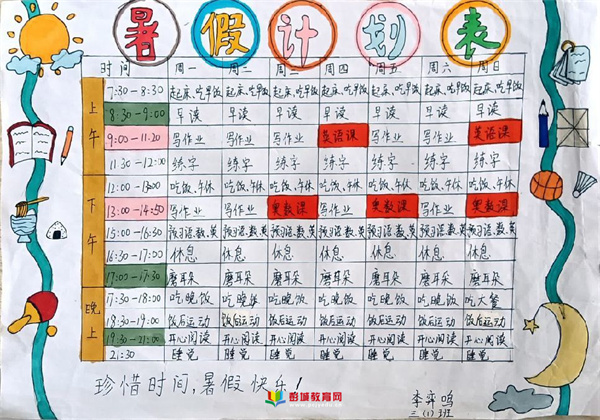 暑假计划表
时间 周一 周二 周三 周四 周五 周六 周日
上午
7:30-8:30 起床、吃早饭 起床、吃早饭 起床、吃早饭 起床、吃早饭 起床、吃早饭 起床、吃早饭 起床、吃早饭
8:30-9:00 早读 早读 早读 早读 早读 早读 早读
9:00-11:20 写作业 写作业 写作业 英语课 写作业 写作业 英语课
11:30-12:00 练字 练字 练字 练字 练字 练字 练字
下午
12:00-13:00 吃饭、午休 吃饭、午休 吃饭、午休 吃饭、午休 吃饭、午休 吃饭、午休 吃饭、午休
13:00-14:50 写作业 写作业 奥数课 写作业 奥数课 写作业 奥数课
15:00-16:30 预习语.数.英 预习语.数.英 预习语.数.英 预习语.数.英 预习语.数.英 预习语.数.英 预习语.数.英
16:30-17:00 休息 休息 休息 休息 休息 休息 休息
17:00-17:30 磨耳朵 磨耳朵 磨耳朵 磨耳朵 磨耳朵 磨耳朵 磨耳朵
晚上
17:30-18:00 吃晚饭 吃晚饭 吃晚饭 吃晚饭 吃晚饭 吃晚饭 吃大餐
18:30-19:00 饭后运动 饭后运动 饭后运动 饭后运动 饭后运动 饭后运动 饭后运动
19:30-21:00 开心阅读 开心阅读 开心阅读 开心阅读 开心阅读 开心阅读 开心阅读
21:30 睡觉 睡觉 睡觉 睡觉 睡觉 睡觉 睡觉
珍惜时间,暑假快乐!
李弈鸣
三(1)班
教育网